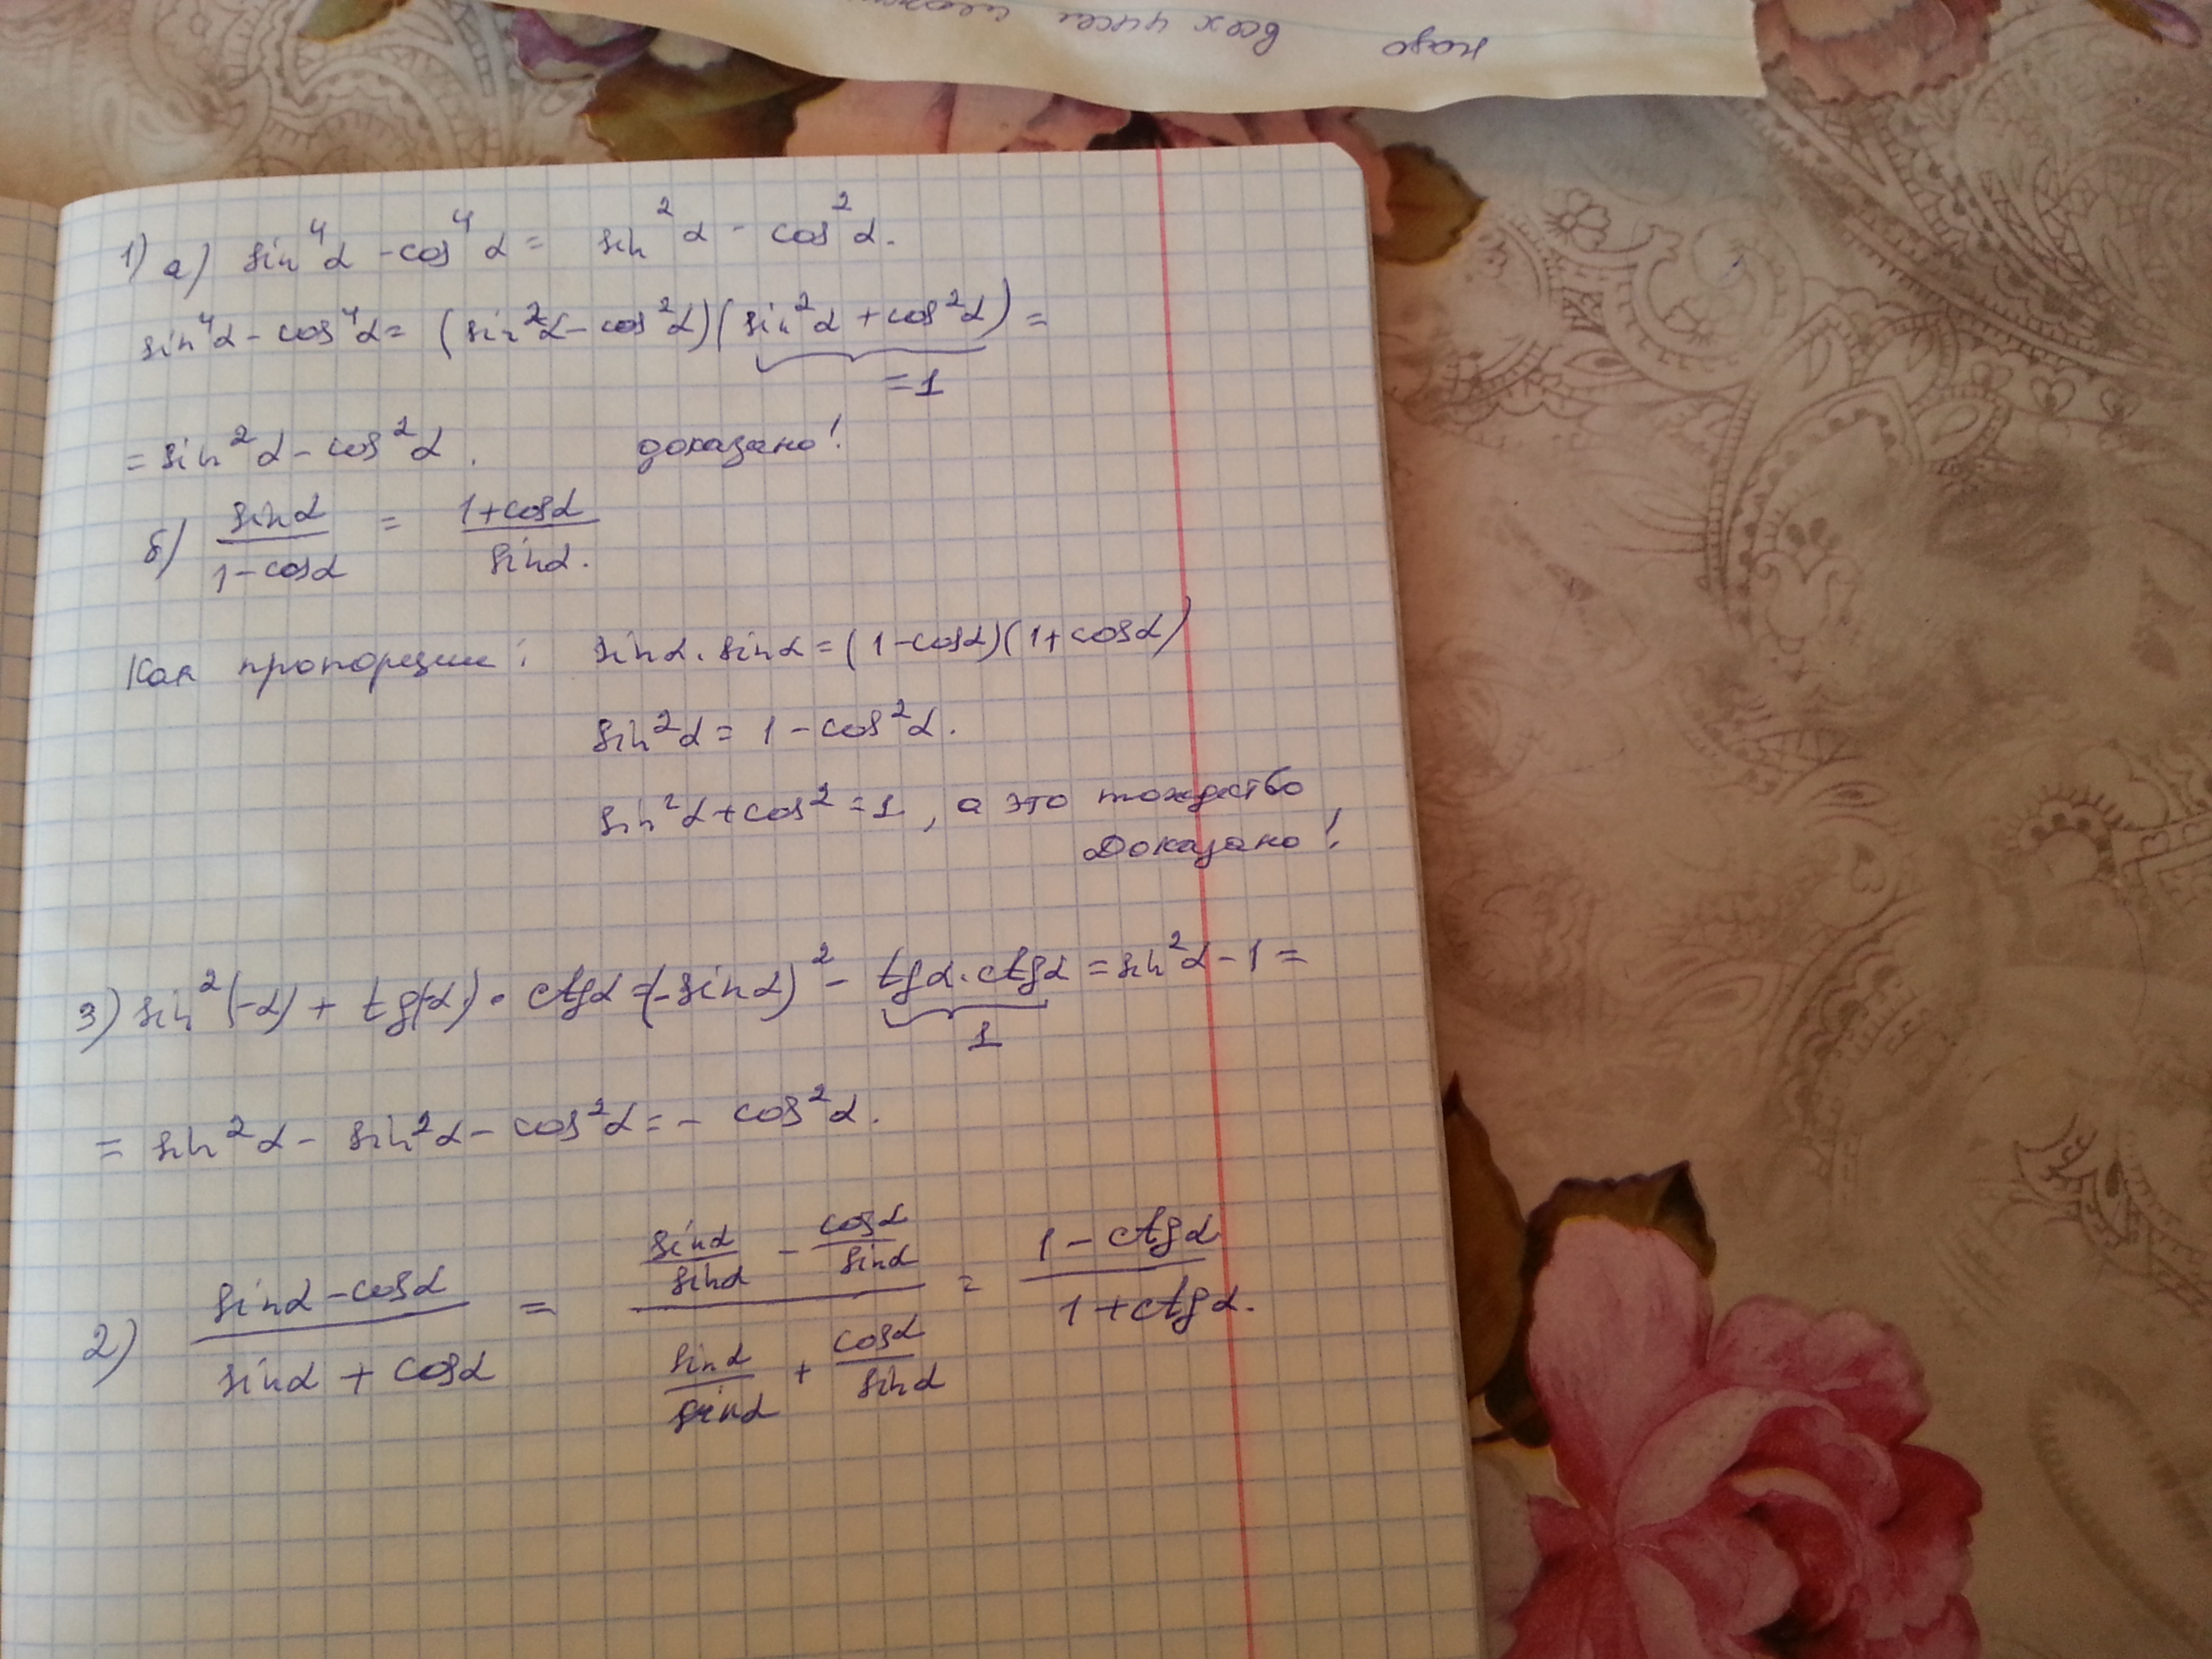 надо всех чисел
1) а) sin⁴α - cos⁴α = sin²α - cos²α.
sin⁴α - cos⁴α = (sin²α - cos²α)(sin²α + cos²α) =
=1
= sin²α - cos²α. доказано!
б) sinα/(1-cosα) = (1+cosα)/sinα.
Как пропорции: sinα·sinα = (1-cosα)(1+cosα)
sin²α = 1 - cos²α.
sin²α + cos² = 1, а это тождество
Доказано!
3) sin²(-α) + tg(-α) · ctgα = (-sinα)² - tgα·ctgα = sin²α - 1 =
1
= sin²α - sin²α - cos²α = - cos²α.
2) (sinα - cosα)/(sinα + cosα) = (sinα/sinα - cosα/sinα)/(sinα/sinα + cosα/sinα) = (1 - ctgα)/(1 + ctgα).